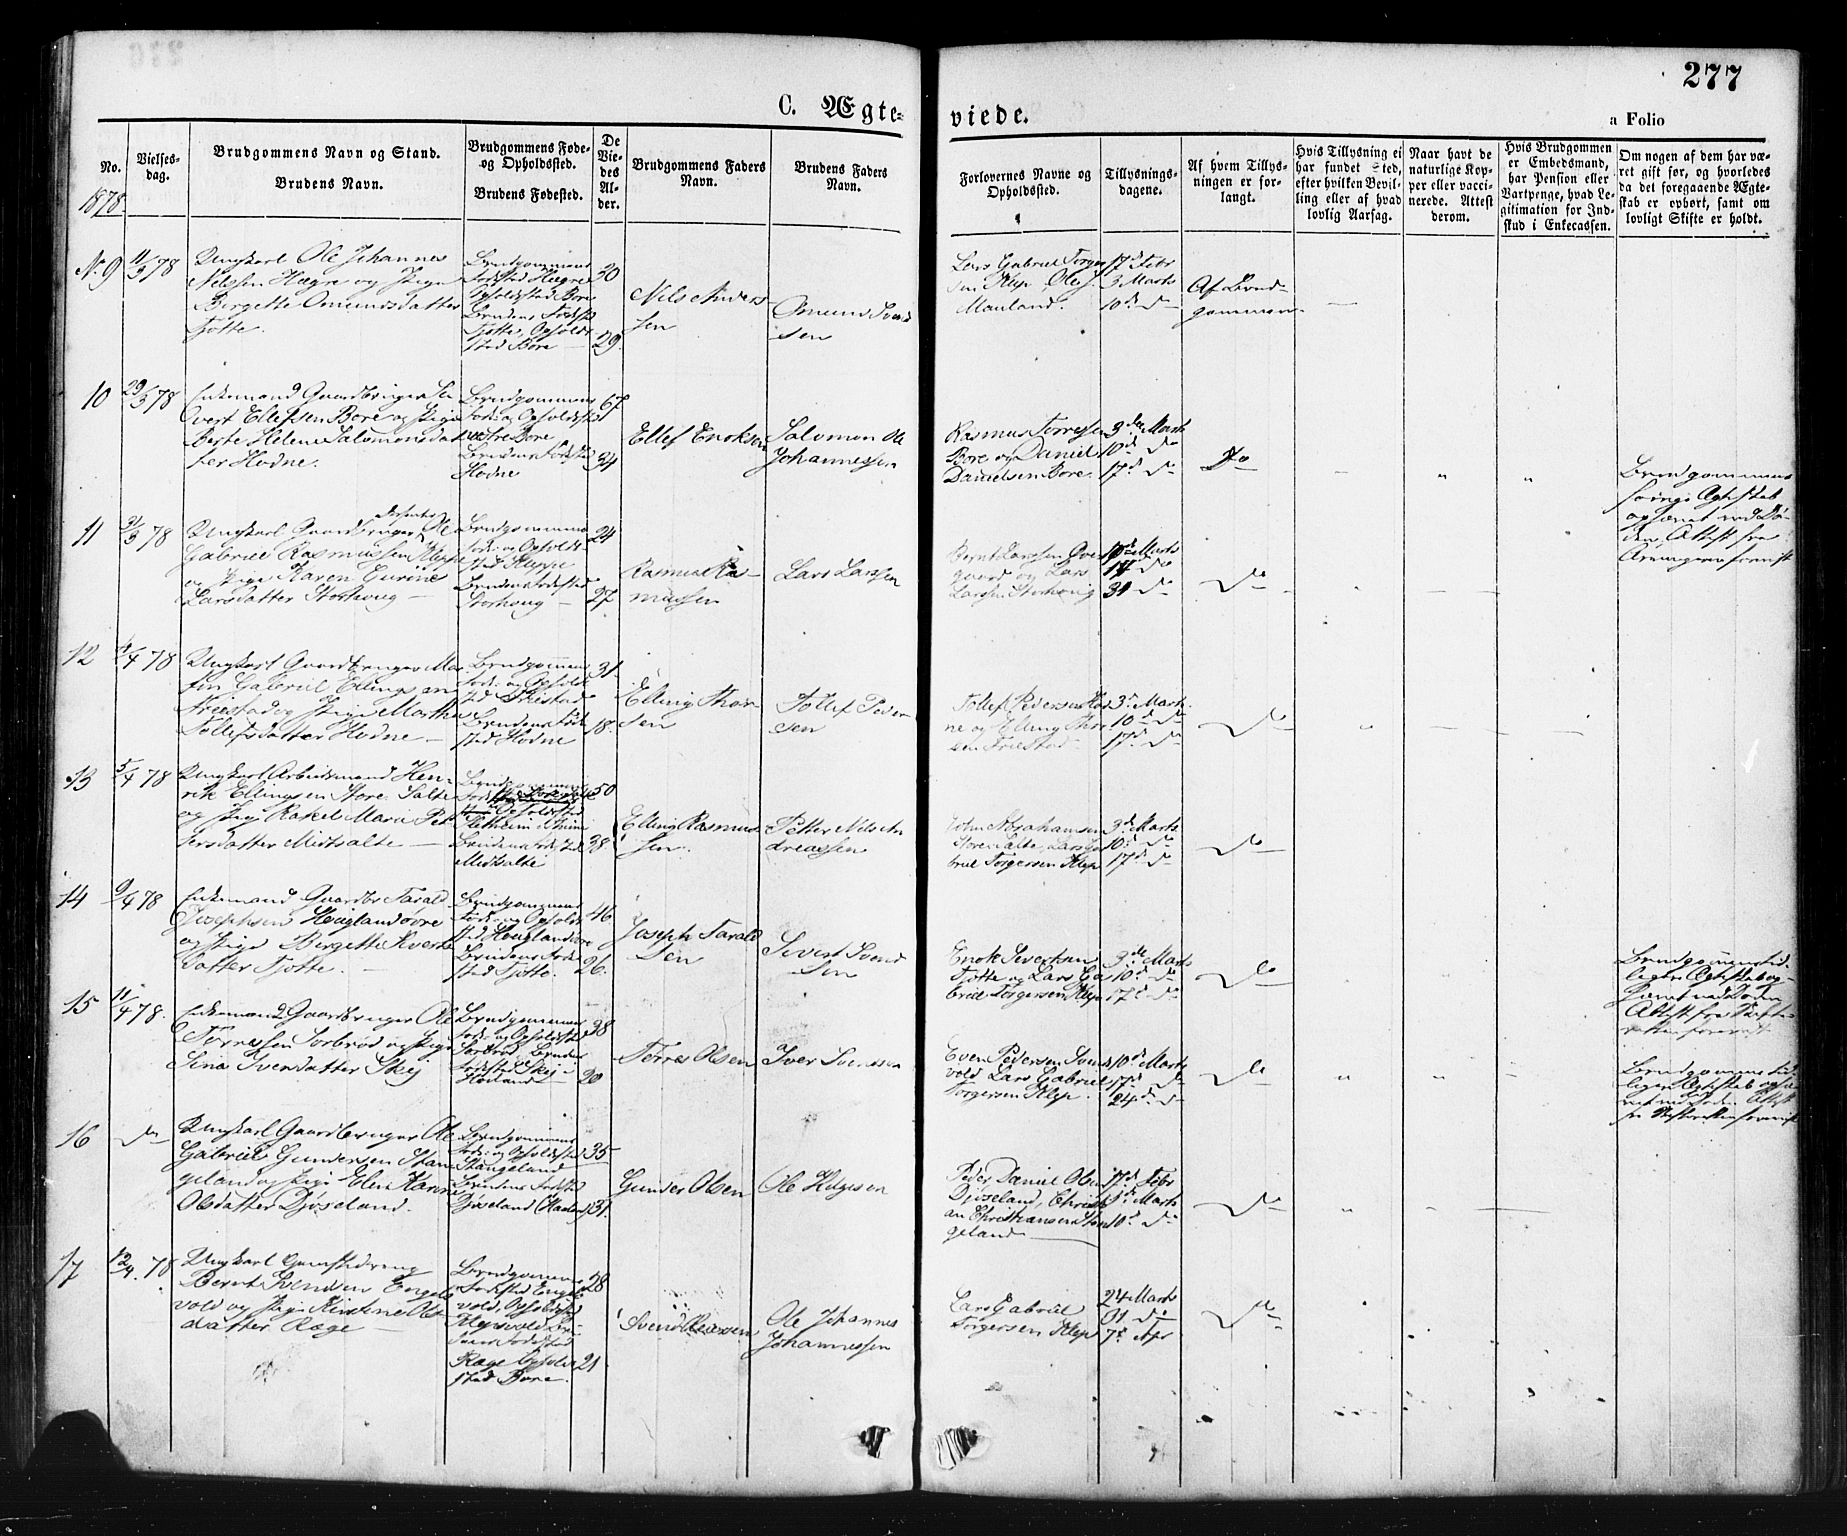 277
C. Ægte-
viede.
a Folio
No.
Vielses-
dag.
Brudgommens Navn og Stand.
Brudens Navn.
Brudgommens Føde-
og Opholdssted.
Brudens Fødested.
De
Vie-
des
Al-
der.
Brudgommens Faders
Navn.
Brudens Faders
Navn.
Forlovernes Navne og
Opholdssted.
Tillysnings-
dagene.
Af hvem Tillys-
ningen er for-
langt.
Hvis Tillysning ei
har fundet Sted,
efter hvilken Bevil-
ling eller af hvad
lovlig Aarsag.
Naar havt de
naturlige Kop-
per eller vacci-
nerede. Attest
derom.
Hvis Brudgommen
er Embedsmand,
har Pension eller
Vartpenge, hvad Le-
gitimation for Ind-
skud i Enkecassen.
Om nogen af dem har væ-
ret gift før, og hvorledes
da det foregaaende Ægte-
skab er ophørt, samt om
lovligt Skifte er holdt.
1878.
No 9
11/3 78
Ungkarl Ole Johannes
Nilssen Hægre og Pige
Bergette Omundsdatter
Tjøtte.
Brudgommens
Fødested Hægre
Opholdssted Bore
Brudens Fødest
Tjøtte, Opholds
sted Bore
30
29.
Nils Anders
sen
Omund Svend
sen
Lars Gabriel Torger
sen Klep, Ole J.
Mauland.
17de Febr
3 Marts
10de Do
Af Brud-
gommen
10
29/3 78
Enkemand Gaardbruger Si
vert Ellefsen Bore og Pige
Berte Helene Salomonsdat
ter Hodne.
Brudgommens
Føde- og Opholdsted
vestre Bore
Brudens Fødested
Hodne
67
34
Ellef Enoksen
Salomon Ole
Johannessen
Rasmus Torressen
Bore og Daniel
Danielsen Bore.
3die Marts
10de Do
17de Do
Do
Brudgommens
forrige Ægteskab
ophævet ved Dø-
den, Attest fra
11
31/3 78
Ungkarl Gaardbruger Ole
Gabriel Rasmussen Kleppe
og Pige Karen Gurine
Larsdatter Storhoug
Brudgommens
Føde- og Opholds-
sted Kleppe
Brudens Fødested
Storhoug
24
27
Rasmus Ras-
mussen
Lars Larsen
Bernt Larssen Øvre
gaard og Lars
Larssen Storhoug
10de Marts
17 Do
31 Do
Do
12
1/4 78
Ungkarl Gaardbruger Mar
tin Gabriel Ellingsen
Friestad og Pige Martha
Tollefsdatter Hodne
Brudgommens
Føde- og Opholds
sted Friestad
Brudens Føde
sted Hodne
31.
18.
Elling Thor
sen
Tollef Peder
sen
Tollef Pedersen Hod
ne og Elling Thor
sen Friestad
3de Marts
10de Do
17de Do
Do
13
5/4 78
Ungkarl Arbeidsmand Hen-
rik Ellingsen Store Salte
og Pige Rakel Maria Pet
tersdatter Midtsalte
Brudgommens
Opholdssted
Brudens Fødested
Midtsalte
50
38
Elling Rasmus
sen.
Petter Nils An
dreassen
John Abrahamsen
Store Salte, Lars Ga
briel Torgersen Klep
3de Marts
10de Do
17de Do
Do
14
9/4 78
Enkemand Gaardbr Tarald
Josephsen Houglandøvre
og Pige Bergette Siverts
datter Tjotte.
Brudgommens
Føde- og Opholds
sted Houglandøvre
Brudens Føde
sted Tjotte.
46
26.
Joseph Tarald
sen
Sivert Svend
sen
Enok Sivertsen
Tjotte og Lars Ga
briel Torgersen Klep
3die Marts
10de Do
17de Do
Do
Brudgommens tid-
ligere Ægteskab op-
hævet ved Døden
Attest fra Skifte-
retten forevist
15
11/4 78.
Enkemand Gaardbruger Ole
Torressen Sørbrød og Pige
Sina Iversdatter Skej
Brudgommens
Føde- og Opholdssted
Sørbrød, Brudens
Fødested Skej
Høiland
38
20
Torres Olsen
Iver Svensen
Even Pedersen Sunds
vold Lars Gabriel
Torgersen Klep.
10de Marts
17de Do
24de Do
Do
Brudgommens tid-
ligere Ægteskab ophæ
vet ved Døden Attest
fra Skifteretten forevist
16
Do
Ungkarl Gaardbruger Ole
Gabriel Gundersen Stan
geland og Pige Elen Hanne
Olsdatter Djøseland.
Brudgommens
Føde- og Opholdssted
Stangeland
Brudens Fødested
Djøseland (Haaland)
35
31.
Gunder Olsen
Ole Helgesen
Peder Daniel Olsen
Djøseland, Christi
an Christiansen Stan
geland
17de Febr
3de Marts
10de Do
Do
17
12/4. 78
Ungkarl
Bernt Svendsen Engels
vold og Pige Kirstine Ols
datter Ræge
Brudgommens
Fødested Engels
vold, Opholdssted
Klepsvold Bru
dens Fødested
Ræge Opholds
sted Bore.
28
21
Svend
Ole Johannes
Johannessen
Lars Gabriel
Torgersen Klep
24 Marts
31 Do
7de Apr
Do